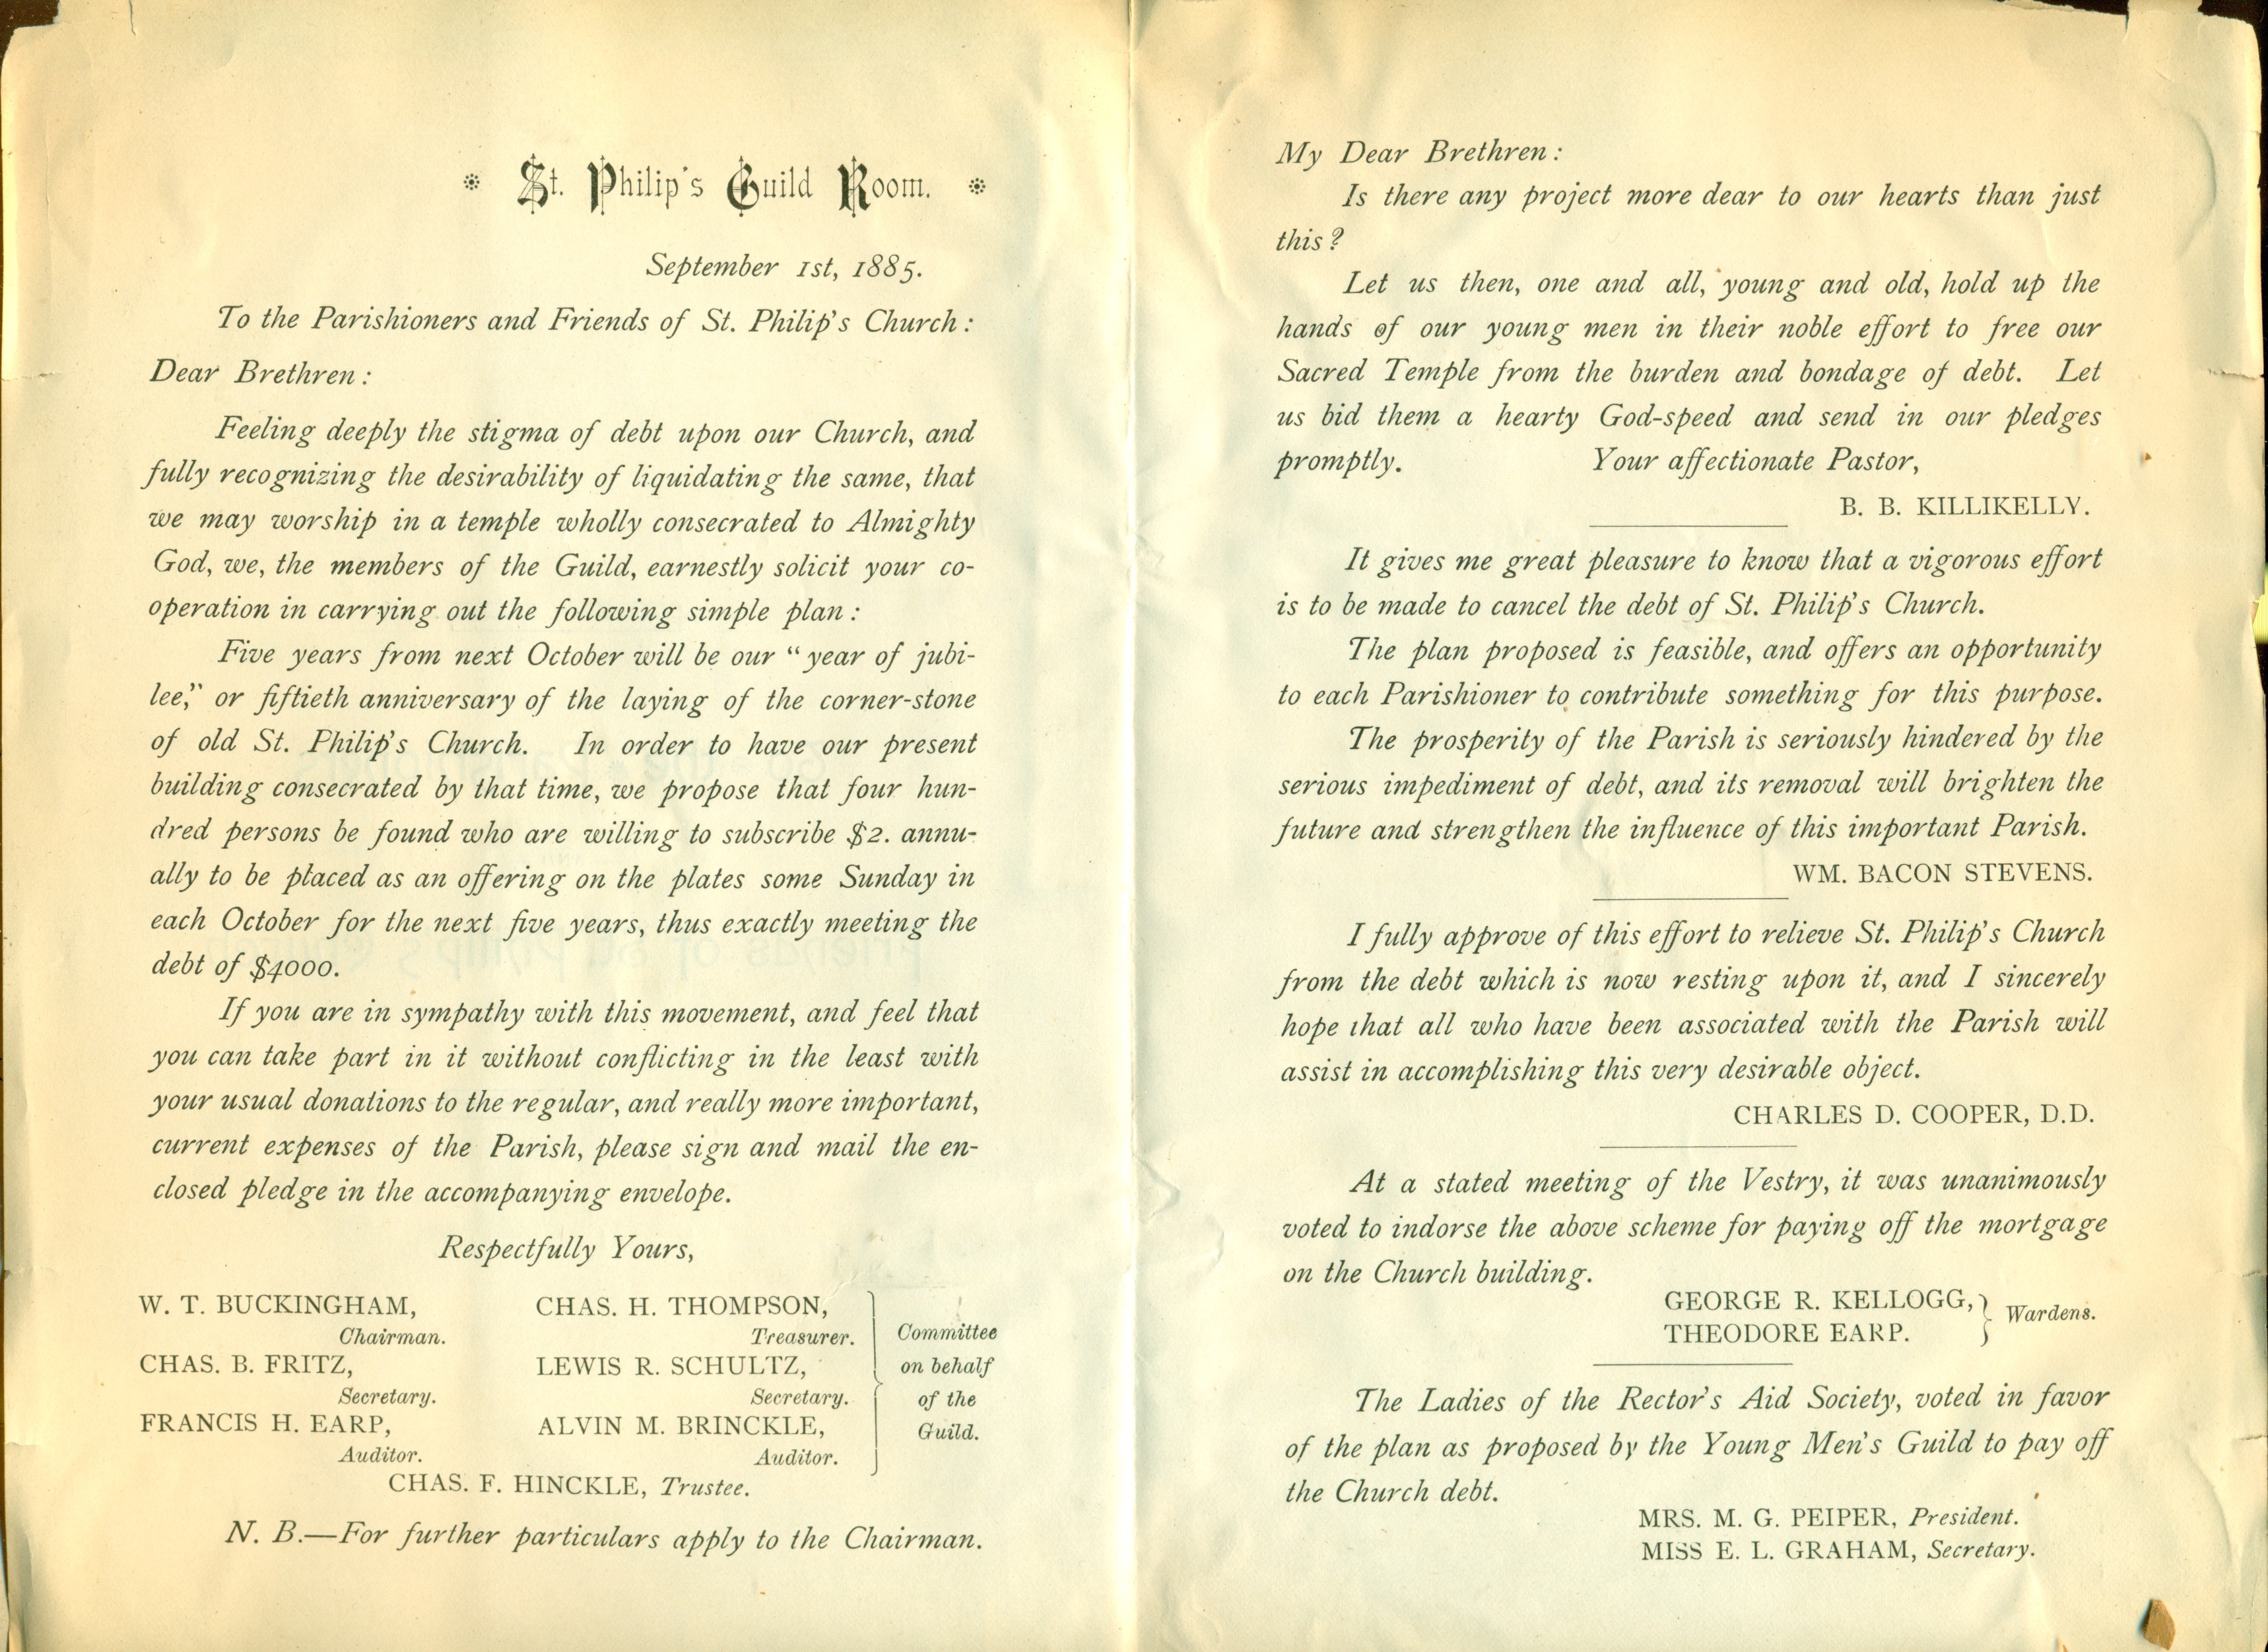 St. Philip's Guild Room.
September 1st, 1885.
To the Parishioners and Friends of St. Philip's Church:
Dear Brethren:
Feeling deeply the stigma of debt upon our Church, and
fully recognizing the desirability of liquidating the same, that
we may worship in a temple wholly consecrated to Almighty
God, we, the members of the Guild, earnestly solicit your co-
operation in carrying out the following simple plan:
Five years from next October will be our "year of jubi-
lee," or fiftieth anniversary of the laying of the corner-stone
of old St. Philip's Church. In order to have our present
building consecrated by that time, we propose that four hun-
dred persons be found who are willing to subscribe $2. annu-
ally to be placed as an offering on the plates some Sunday in
each October for the next five years, thus exactly meeting the
debt of $4000.
If you are in sympathy with this movement, and feel that
you can take part in it without conflicting in the least with
your usual donations to the regular, and really more important,
current expenses of the Parish, please sign and mail the en-
closed pledge in the accompanying envelope.
Respectfully Yours,
W. T. BUCKINGHAM, CHAS. H. THOMPSON,
Chairman. Treasurer. Committee
CHAS. B. FRITZ, LEWIS R. SCHULTZ, on behalf
Secretary. Secretary. of the
FRANCIS H. EARP, ALVIN M. BRINCKLE, Guild.
Auditor. Auditor.
CHAS. F. HINCKLE, Trustee.
N. B.—For further particulars apply to the Chairman.
My Dear Brethren:
Is there any project more dear to our hearts than just
this?
Let us then, one and all, young and old, hold up the
hands of our young men in their noble effort to free our
Sacred Temple from the burden and bondage of debt. Let
us bid them a hearty God-speed and send in our pledges
promptly. Your affectionate Pastor,
B. B. KILLIKELLY.
It gives me great pleasure to know that a vigorous effort
is to be made to cancel the debt of St. Philip's Church.
The plan proposed is feasible, and offers an opportunity
to each Parishioner to contribute something for this purpose.
The prosperity of the Parish is seriously hindered by the
serious impediment of debt, and its removal will brighten the
future and strengthen the influence of this important Parish.
WM. BACON STEVENS.
I fully approve of this effort to relieve St. Philip's Church
from the debt which is now resting upon it, and I sincerely
hope that all who have been associated with the Parish will
assist in accomplishing this very desirable object.
CHARLES D. COOPER, D.D.
At a stated meeting of the Vestry, it was unanimously
voted to indorse the above scheme for paying off the mortgage
on the Church building.
GEORGE R. KELLOGG, Wardens.
THEODORE EARP.
The Ladies of the Rector's Aid Society, voted in favor
of the plan as proposed by the Young Men's Guild to pay off
the Church debt.
MRS. M. G. PEIPER, President.
MISS E. L. GRAHAM, Secretary.